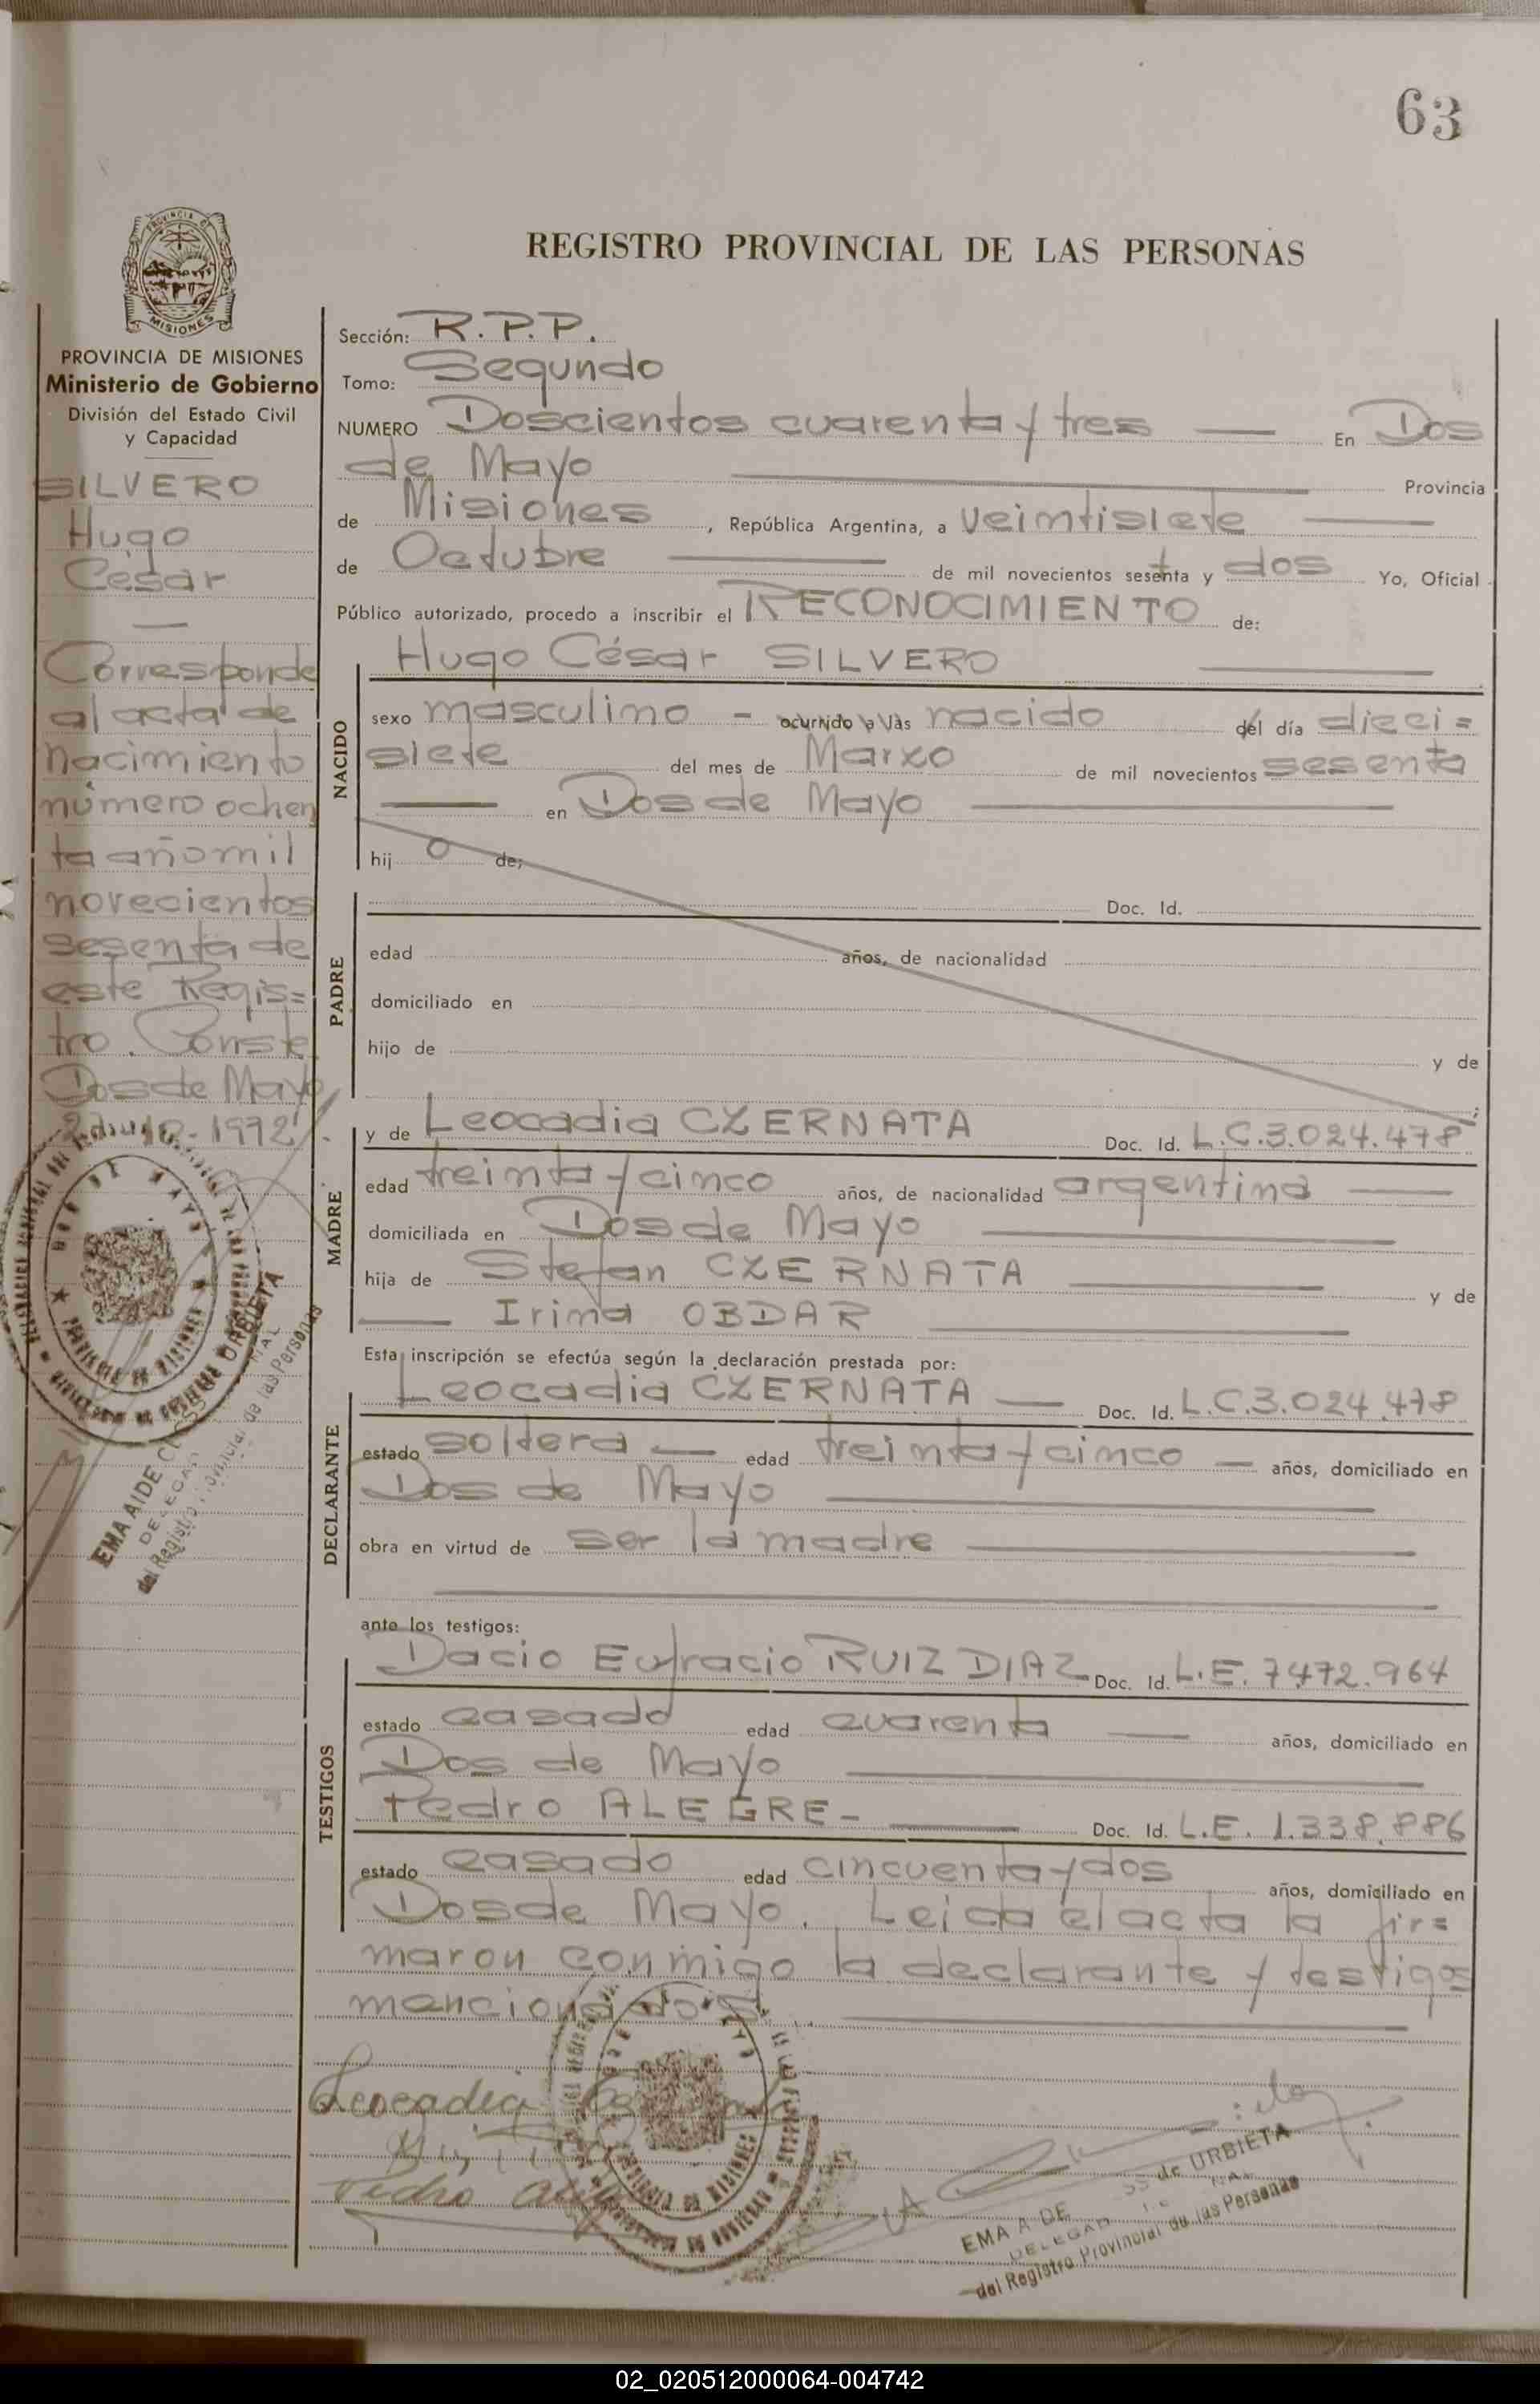 63
PROVINCIA DE
MISIONES
REGISTRO PROVINCIAL DE LAS PERSONAS
PROVINCIA DE MISIONES
Ministerio de Gobierno
División del Estado Civil
y Capacidad
SILVERO
Hugo
César
Corresponde
al acta de
nacimiento
número ochen
ta año mil
novecientos
sesenta de
este Regis=
tro. Conste
Dos de Mayo
10-1972
Sección: R.P.P.
Tomo: Segundo
NUMERO Doscientos cuarenta y tres — En Dos
de Mayo — Provincia
de Misiones, República Argentina, a veintisiete —
de Octubre — de mil novecientos sesenta y dos Yo, Oficial
Público autorizado, procedo a inscribir el RECONOCIMIENTO de:
NACIDO
Hugo César SILVERO —
sexo masculino - ocurrido a las nacido del día dieci=
siete del mes de Marzo de mil novecientos sesenta
— en Dos de Mayo —
hij o de;
PADRE
Doc. Id.
edad años, de nacionalidad
domiciliado en
hijo de y de
MADRE
y de Leocadia CZERNATA Doc. Id. L.C.3.024.478
edad treinta y cinco años, de nacionalidad argentina —
domiciliada en Dos de Mayo —
hija de Stefan CZERNATA — y de
— Irina OBDAR —
Esta inscripción se efectúa según la declaración prestada por:
DECLARANTE
Leocadia CZERNATA — Doc. Id. L.C.3.024.478
estado soltera — edad treinta y cinco — años, domiciliado en
Dos de Mayo —
obra en virtud de ser la madre —
ante los testigos:
TESTIGOS
Dacio Eufracio RUIZ DIAZ Doc. Id. L.E. 7.472.964
estado casado edad cuarenta — años, domiciliado en
Dos de Mayo —
Pedro ALEGRE- — Doc. Id. L.E. 1.338.886
estado casado edad cincuenta y dos años, domiciliado en
Dos de Mayo. Leida el acta la fir=
maron conmigo la declarante y testigos
mencionados. —
Leocadia
Pedro
EMA AIDE URBIETA
del Registro Provincial de las Personas
EMA A DE de URBIETA
DELEGAD
del Registro Provincial de las Personas
02_020512000064-004742